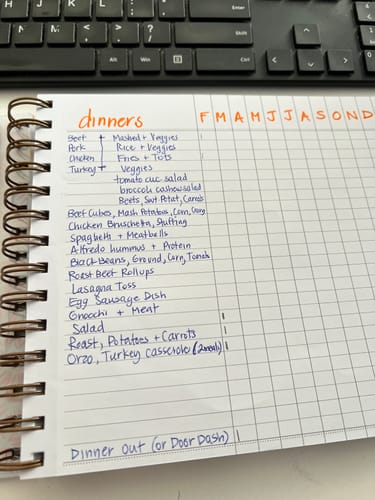 Enter
H J K L
Shift
N M < >
Alt Win Ctrl
dinners F M A M J J A S O N D
Beef + Mashed + Veggies
Pork Rice + Veggies
Chicken Fries + Tots
Turkey + Veggies
tomato cuc salad
broccoli cashew salad
Beets, Swt Potat, Carrots
Beef Cubes, Mash Potatoes, Corn, Gravy
Chicken Bruschetta, Stuffing
Spaghetti + Meatballs
Alfredo hummus + Protein
Black Beans, Ground, Corn, Tomato
Roast Beef Rollups
Lasagna Toss
Egg Sausage Dish
Gnocchi + Meat
Salad
Roast, Potatoes + Carrots
Orzo, Turkey casserole (2 meals)
Dinner out (or Door Dash)